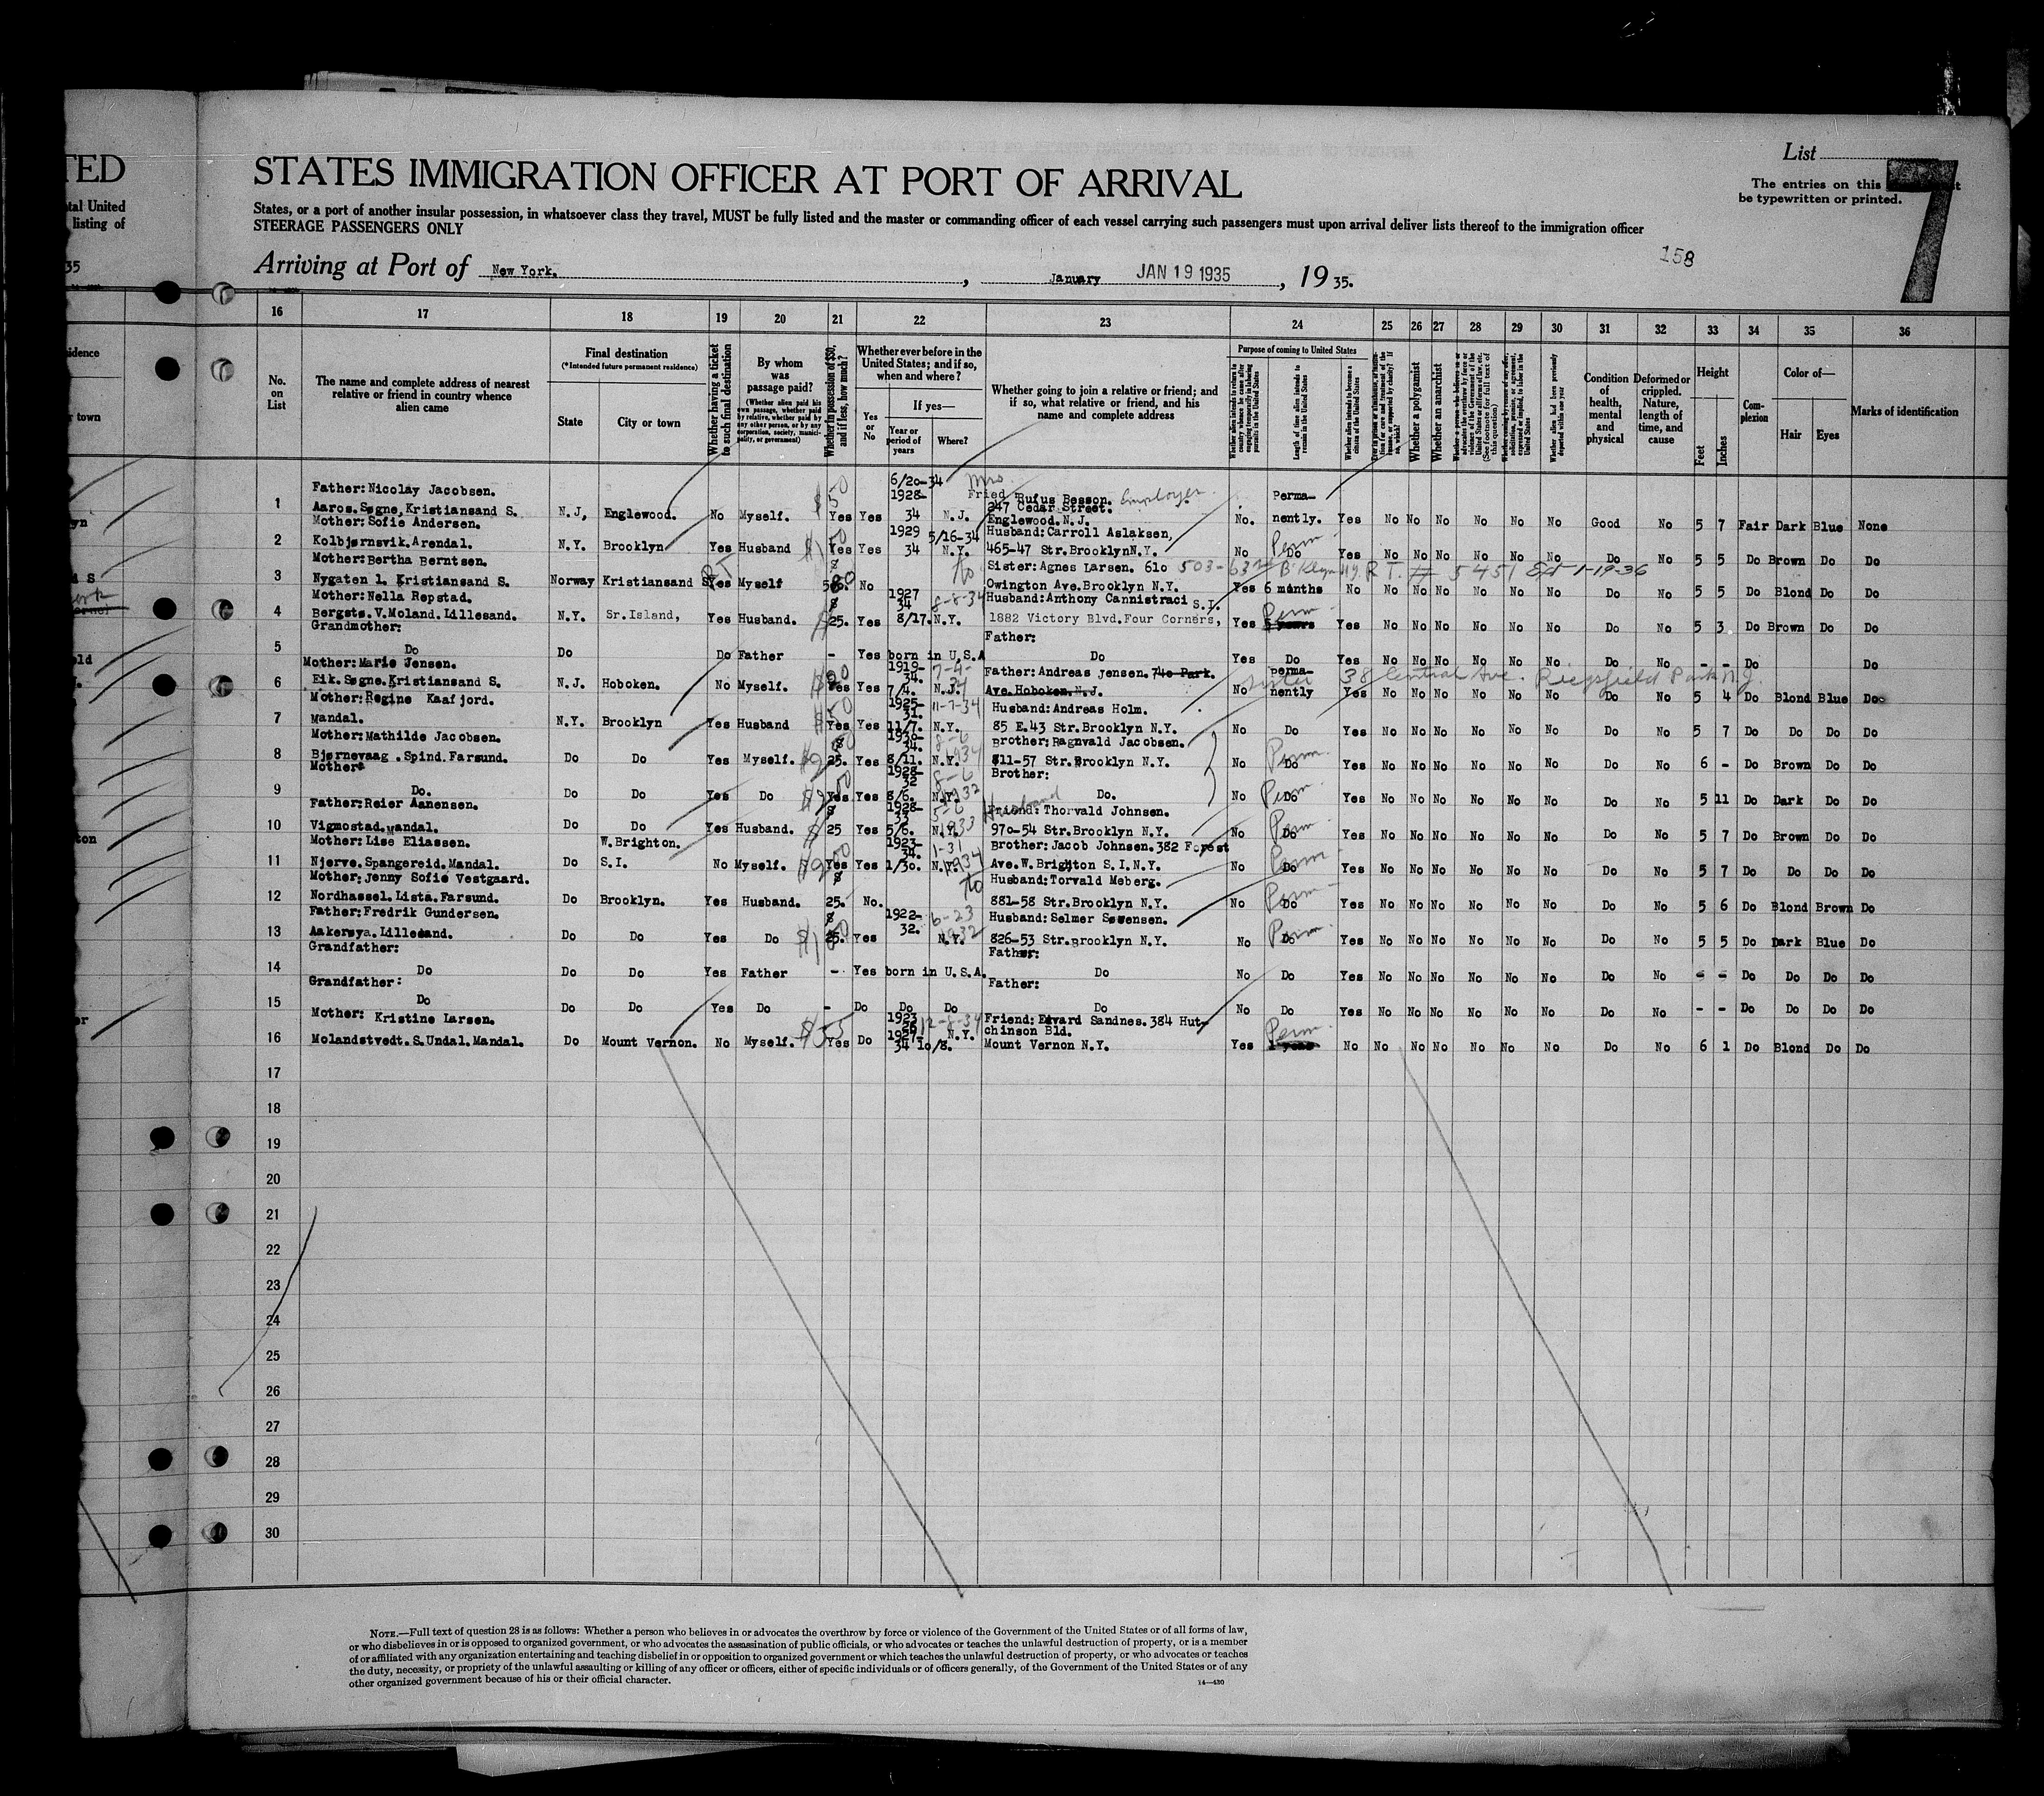 TED
STATES IMMIGRATION OFFICER AT PORT OF ARRIVAL
List
7
The entries on this
be typewritten or printed.
tal United
listing of
States, or a port of another insular possession, in whatsoever class they travel, MUST be fully listed and the master or commanding officer of each vessel carrying such passengers must upon arrival deliver lists thereof to the immigration officer
STEERAGE PASSENGERS ONLY
158
35
Arriving at Port of New York. , January JAN 19 1935 , 19 35.
16 17 18 19 20 21 22 23 24 25 26 27 28 29 30 31 32 33 34 35 36
No. on List
The name and complete address of nearest relative or friend in country whence alien came
Final destination
(*Intended future permanent residence)
State
City or town
Whether having a ticket to such final destination
By whom was passage paid?
(Whether alien paid his own passage, whether paid by relative, whether paid by any other person, or by any corporation, society, municipality, or government)
Whether in possession of $50, and if less, how much?
Whether ever before in the United States; and if so, when and where?
Yes or No
If yes—
Year or period of years
Where?
Whether going to join a relative or friend; and if so, what relative or friend, and his name and complete address
Purpose of coming to United States
Length of time alien intends to remain in the United States
Whether alien intends to become a citizen of the United States
Whether a polygamist
Whether an anarchist
(See footnote for full text of this question)
Whether alien had been previously deported within one year
Condition of health, mental and physical
Deformed or crippled. Nature, length of time, and cause
Height
Feet
Inches
Complexion
Color of—
Hair
Eyes
Marks of identification
6/20-34 Mrs
Father:Nicolay Jacobsen. 1928- Fried Rufus Besson. Employer Perma-
1 Aaros.Søgne,Kristiansand S. N.J, Englewood. No Myself. $50 Yes Yes 34 N.J. 247 Cedar Street. Englewood.N.J. No. nently. Yes No No No No No No Good No 5 7 Fair Dark Blue None
Mother:Sofie Andersen. 1929 5/16-34 Husband:Carroll Aslaksen,
2 Kolbjørnsvik.Arendal. N.Y. Brooklyn Yes Husband Yes Yes 34 N.Y. 465-47 Str.BrooklynN.Y. No Do Perm Yes No No No No No No Do No 5 5 Do Brown Do Do
Mother:Bertha Berntsen. Sister:Agnes Larsen. 610 503-63rd B'klyn N.Y. R T. # 5451 Ext 1-19-36
3 Nygaten 1. Kristiansand S. Norway Kristiansand S RT Yes Myself No Owington Ave.Brooklyn N.Y. Yes 6 months No No No No No No No Do No 5 5 Do Blond Do Do
Mother:Nella Repstad. 1927 34 8-8-34 Husband:Anthony Cannistraci S.I.
4 Bergstø.V.Moland.Lillesand. N.Y. Sr.Island, Yes Husband. 25. Yes 8/17. N.Y. 1882 Victory Blvd.Four Corners, Yes Perm Yes No No No No No No Do No 5 3 Do Brown Do Do
Grandmother: Father:
5 Do Do Do Father - Yes born in U.S.A Do Yes Do Yes No No No No No No Do No - - Do Do
Mother:Marie Jensen. 1919- 34. 7-4-34 Father:Andreas Jensen.740 Park. perma- sister 38 Central Ave. Riegsfield Park N.J.
6 Eik.Søgne.Kristiansand S. N.J. Hoboken. No Myself. Yes Yes 7/4. N.J. Ave.Hoboken.N.J. No nently Yes No No No No No No Do No 5 4 Do Blond Blue Do
Mother:Regine Kaafjord. 1925- 31. 11-7-34 Husband:Andreas Holm.
7 Mandal. N.Y. Brooklyn Yes Husband Yes Yes 11/7. N.Y. 85 E.43 Str.Brooklyn N.Y. No Do Yes No No No No No No Do No 5 7 Do Do Do Do
Mother:Mathilde Jacobsen. 1930- 34. 8-6 1934 Brother:Ragnvald Jacobsen.
8 Bjørnevaag .Spind.Farsund. Do Do Yes Myself. 25. Yes 8/11. N.Y. 811-57 Str.Brooklyn N.Y. No Do Perm Yes No No No No No No Do No 6 - Do Brown Do Do
Mother: 1928- 32 8-6 1932 Brother:
9 Do. Do Do Yes Do Yes Yes 8/6. N.Y. Do. No Do Perm Yes No No No No No No Do No 5 11 Do Dark Do Do
Father:Reier Aanensen. 1928- 33 5-6 1933 Husband Friend:Thorvald Johnsen.
10 Vigmostad.Mandal. Do Do Yes Husband. 25 Yes 5/6. N.Y. 970-54 Str.Brooklyn N.Y. No Do Perm Yes No No No No No No Do No 5 7 Do Brown Do Do
Mother:Lise Eliassen. W.Brighton. 1923- 34. 1-31 1934 Brother:Jacob Johnsen.382 Forest
11 Njerve.Spangereid.Mandal. Do S.I. No Myself. Yes Yes 1/30. N.Y. Ave.W.Brighton S.I.N.Y. No Do Perm Yes No No No No No No Do No 5 7 Do Do Do Do
Mother:Jenny Sofie Vestgaard. No Husband:Torvald Meberg.
12 Nordhassel.Lista.Farsund. Do Brooklyn. Yes Husband. 25. No. 881-58 Str.Brooklyn N.Y. No Do Perm Yes No No No No No No Do No 5 6 Do Blond Brown Do
Father:Fredrik Gundersen. 1922- 32. 6-23 1932 Husband:Selmer Sørensen.
13 Aakerøya.Lillesand. Do Do Yes Do 25. Yes N.Y. 826-53 Str.Brooklyn N.Y. No Do Perm Yes No No No No No No Do No 5 5 Do Dark Blue Do
Grandfather: Father:
14 Do Do Do Yes Father - Yes born in U.S.A. Do No Do Yes No No No No No No Do No - - Do Do Do Do
Grandfather: Father:
15 Do Do Do Yes Do - Do Do Do Do No Do Yes No No No No No No Do No - - Do Do Do Do
Mother: Kristine Larsen. 1923 12-8-34 Friend:Edvard Sandnes.384 Hut-
chinson Bld.
16 Molandstvedt.S.Undal.Mandal. Do Mount Vernon. No Myself. Yes Do 34 10/8. N.Y. Mount Vernon N.Y. Yes Perm No No No No No No No Do No 6 1 Do Blond Do Do
17
18
19
20
21
22
23
24
25
26
27
28
29
30
NOTE.—Full text of question 28 is as follows: Whether a person who believes in or advocates the overthrow by force or violence of the Government of the United States or of all forms of law,
or who disbelieves in or is opposed to organized government, or who advocates the assassination of public officials, or who advocates or teaches the unlawful destruction of property, or is a member
of or affiliated with any organization entertaining and teaching disbelief in or opposition to organized government or which teaches the unlawful destruction of property, or who advocates or teaches
the duty, necessity, or propriety of the unlawful assaulting or killing of any officer or officers, either of specific individuals or of officers generally, of the Government of the United States or of any
other organized government because of his or their official character.
14—430